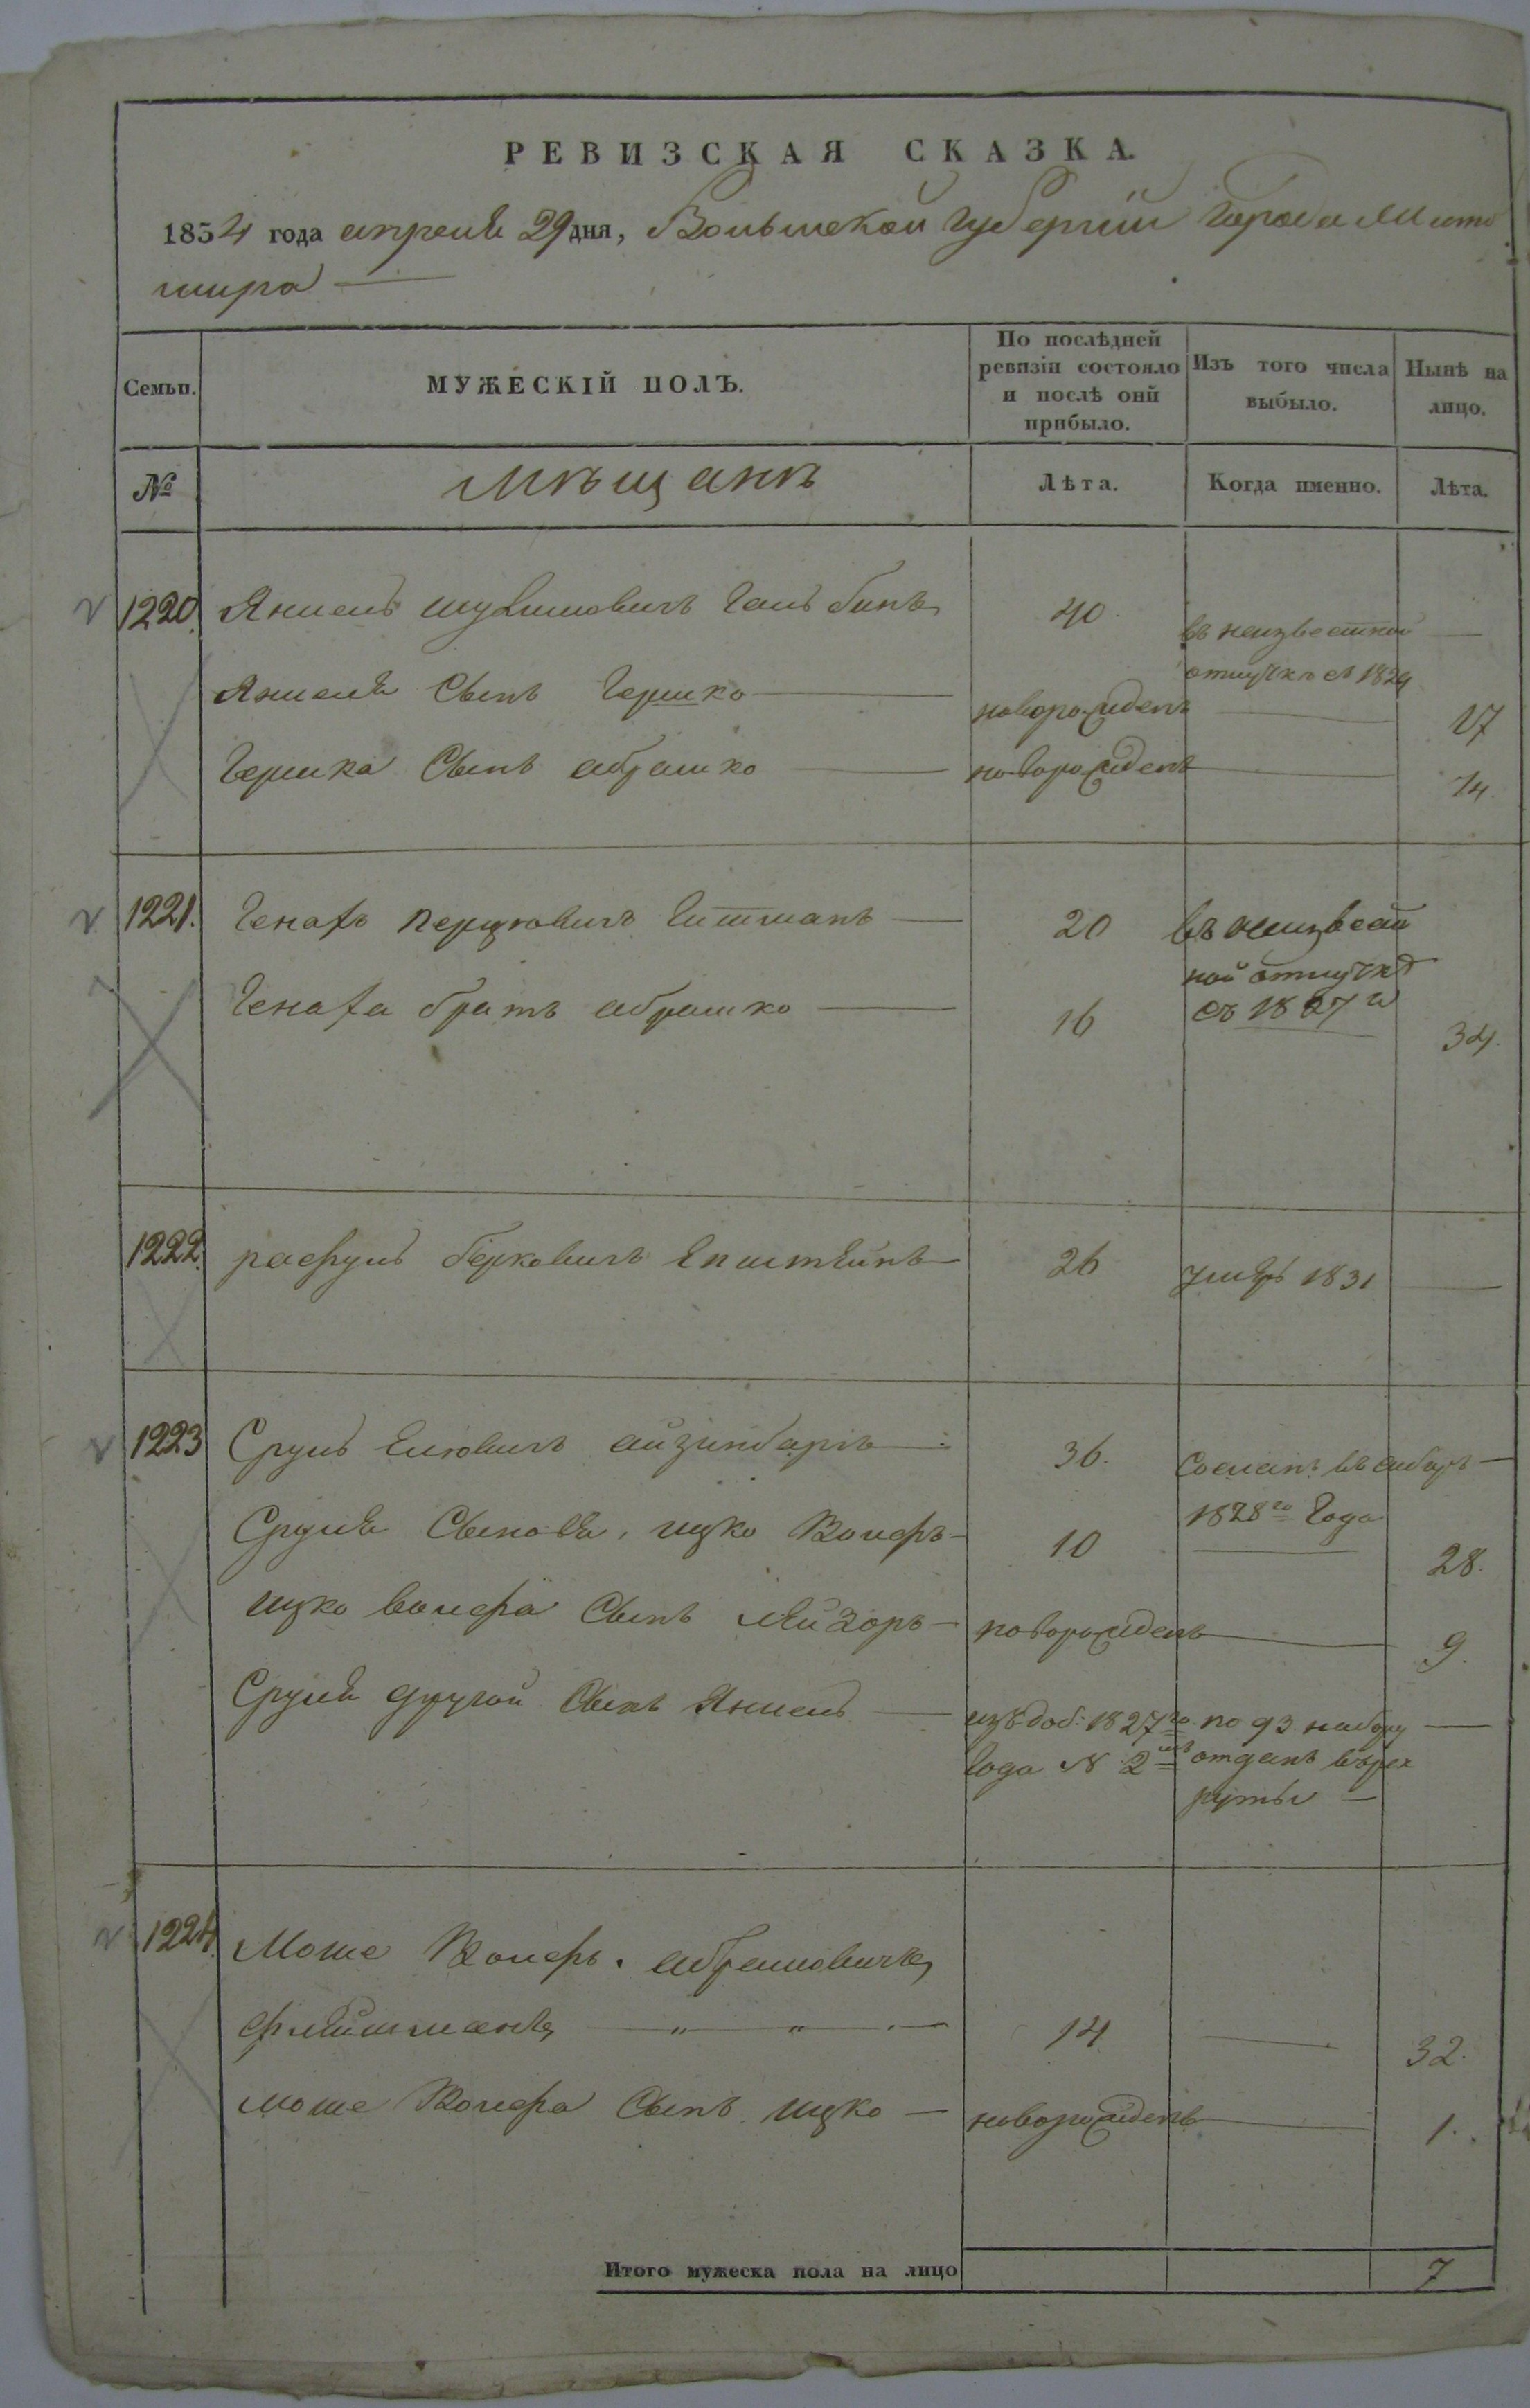 РЕВИЗСКАЯ СКАЗКА.
1834 года апреля 29 дня, Волынской губернии города Жито
мира —
Семьи. МУЖЕСКІЙ ПОЛЪ. По послѣдней ревизіи состояло и послѣ оной прибыло. Изъ того числа выбыло. Нынѣ на лицо.
№ Мѣщанѣ Лѣта. Когда именно. Лѣта.
1220. Янкель Гальбинъ 40. въ неизвестной —
отлучке съ 1829
Янкеля Сынъ Гершко — новорожденъ — 17
Гершка Сынъ абрашко — новорожденъ — 14.
1221. Перцювичъ Гитманъ — 20 въ неизвест
ной отлучке
съ 1827 г
братъ абрашко — 16 — 34.
1222. рафулъ берковичъ Епштейнъ — 26 умеръ 1831 —
1223 Срулъ Елювичъ айзинбаргъ — 36. Сосланъ въ сибирь —
1828го Года
Сруля Сыновя, ицко Волфъ — 10 — 28.
ицко волфа Сынъ лейзоръ — новорожденъ — 9.
Сруля другой Сынъ Янкель — изъ доб: 1827го по 93 набору —
Года № 2мъ отданъ въ рек
руты —
1224. Моше Волфъ. абрамовичъ
флейшманъ — " — " — 14 — 32.
моше Волфа Сынъ ицко — новорожденъ — 1.
Итого мужеска пола на лицо 7